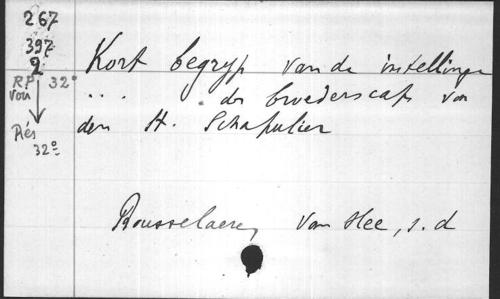 267
397
2
RP 32°
von
Rés
32°
Kort begryp van de instellinge
... der broederscap van
den H. Schapulier
Rousselaere, Van Hee, s. d